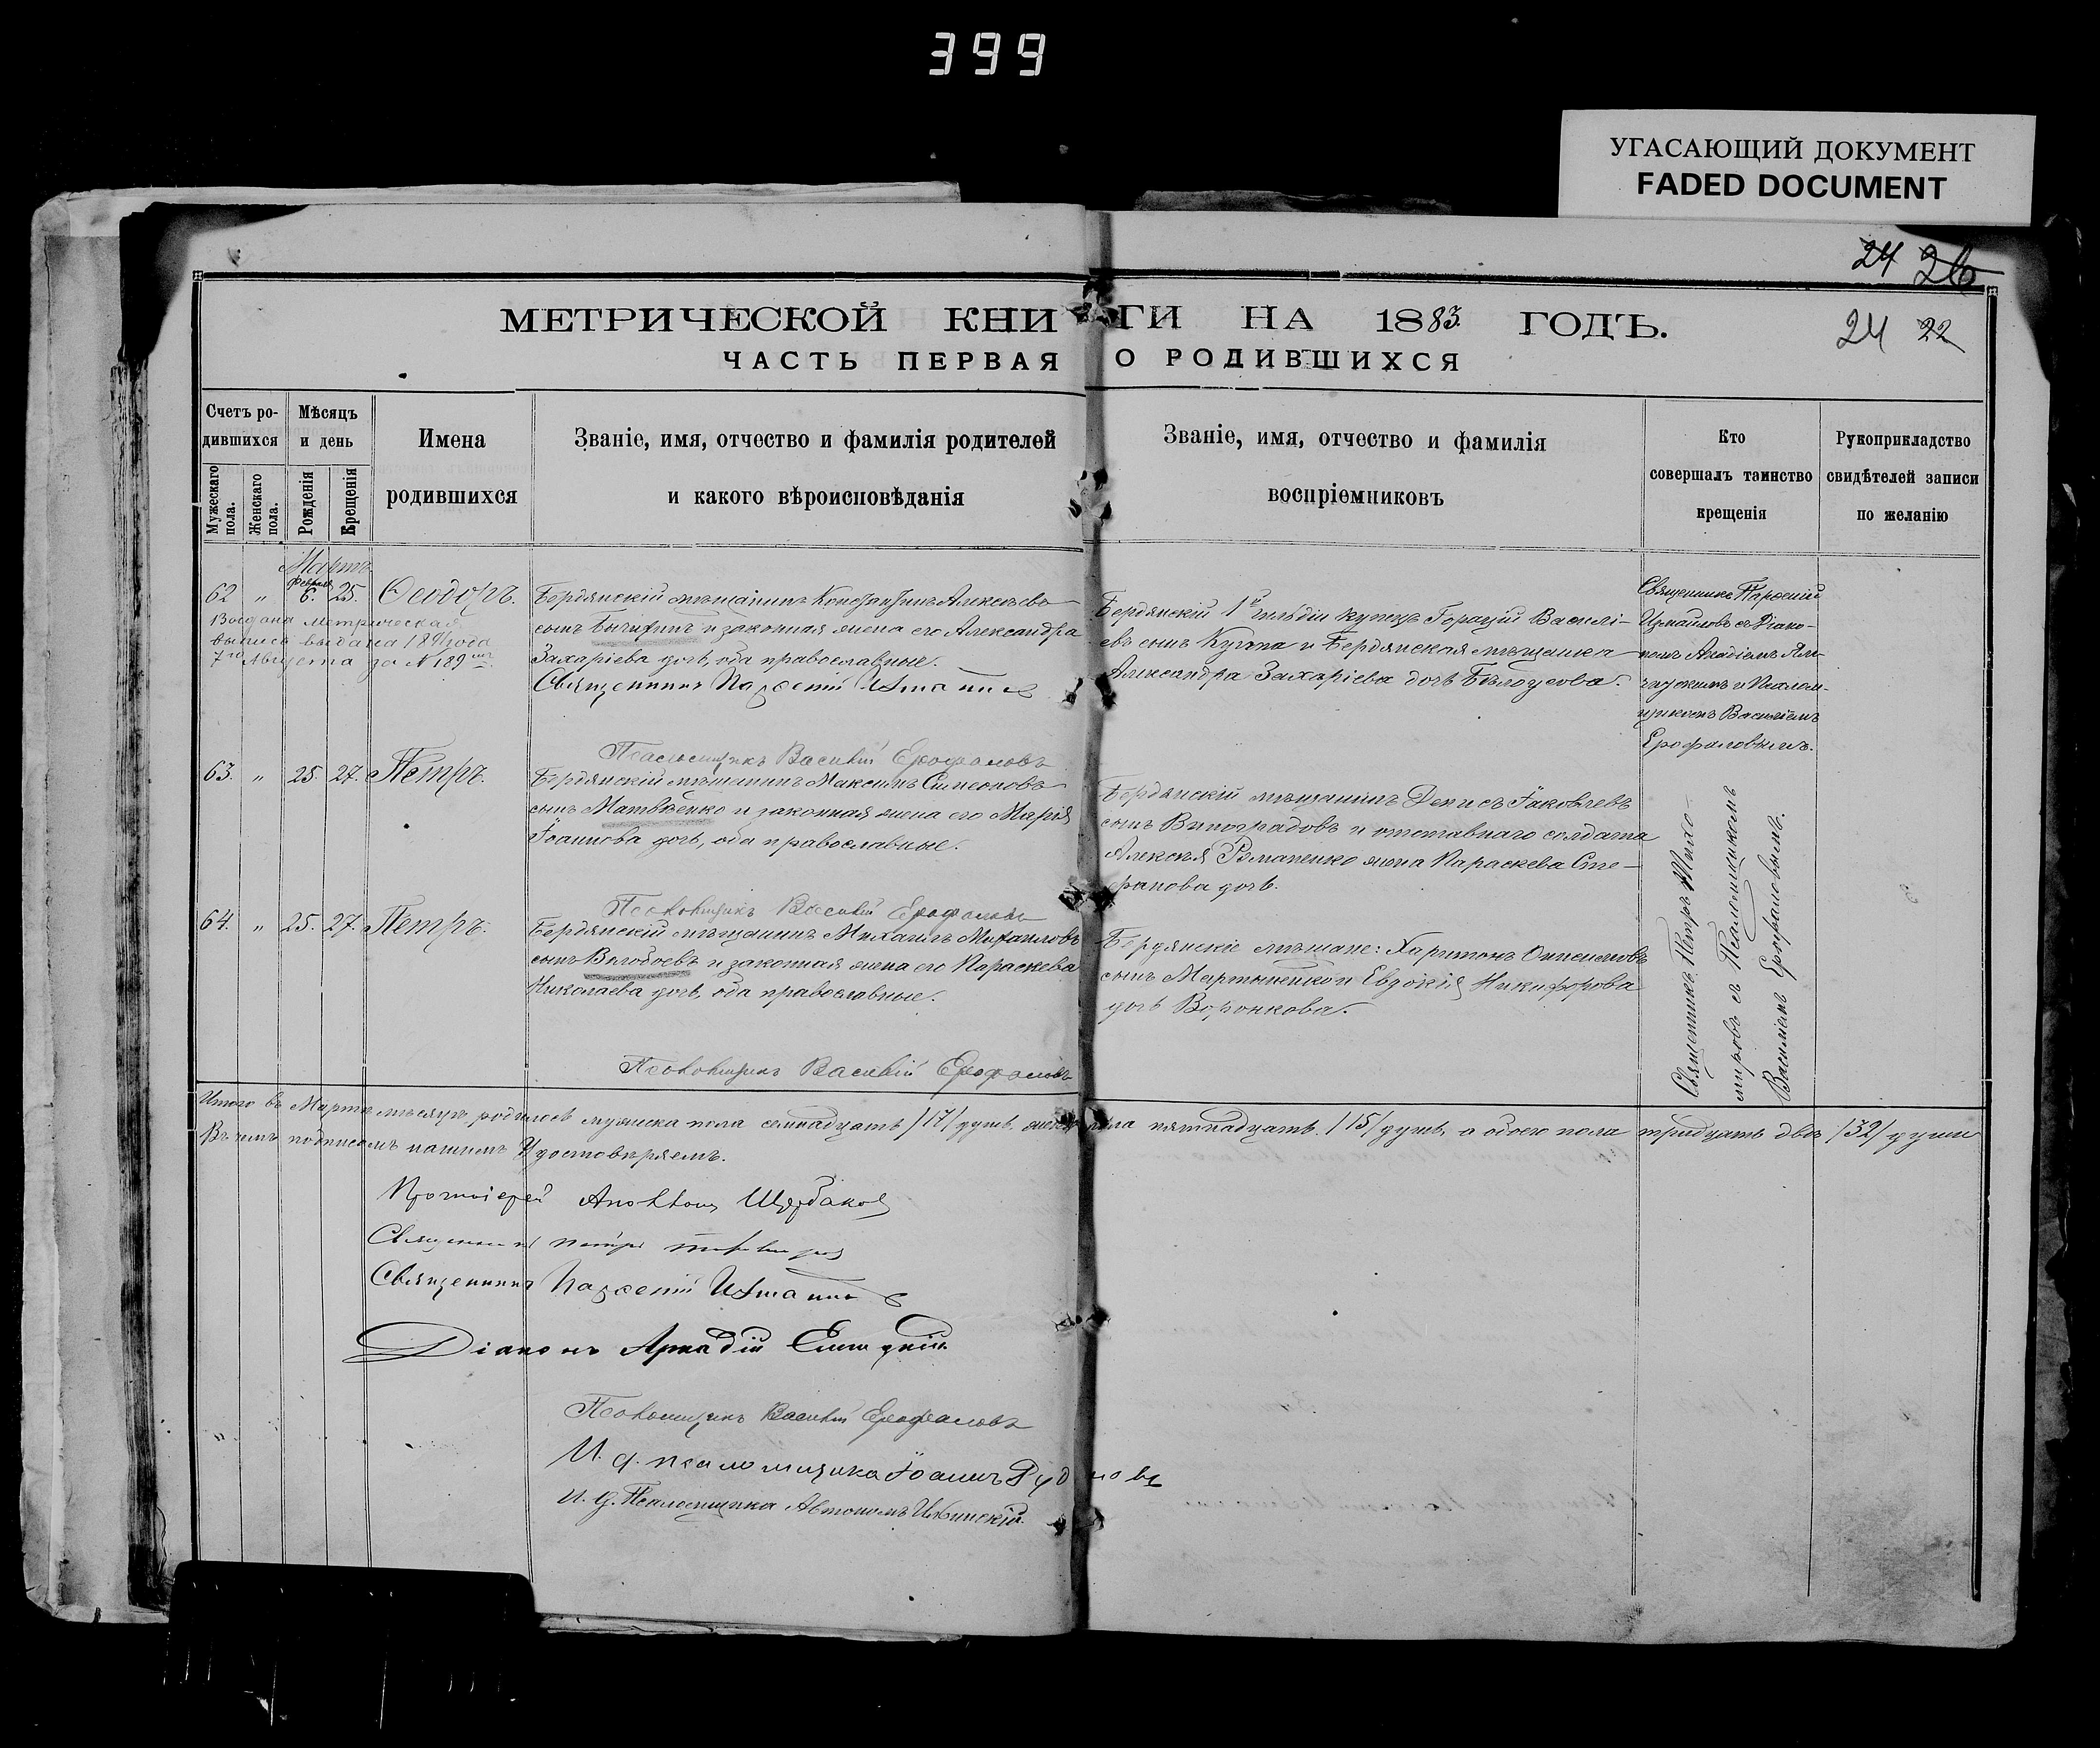 399
УГАСАЮЩИЙ ДОКУМЕНТ
FADED DOCUMENT
24 26
24 22
МЕТРИЧЕСКОЙ КНИГИ НА 1883 ГОДЪ.
ЧАСТЬ ПЕРВАЯ О РОДИВШИХСЯ
Счетъ ро-
дившихся
Мужескаго пола.
Женскаго пола.
Мѣсяцъ
и день
Рожденія
Крещенія
Имена
родившихся
Званіе, имя, отчество и фамилія родителей
и какого вѣроисповѣданія
Званіе, имя, отчество и фамилія
воспріемниковъ
Кто
совершалъ таинство
крещенія
Рукоприкладство
свидѣтелей записи
по желанію
Мартъ
62 " Февраля 6. 25. Ѳеодоръ.
метрическая
выпись выдана
7го Августа за № 189
Бердянскій мѣщанинъ Константинъ Алексѣевъ
сынъ и законная жена его Александра
Захаріева дочь, оба православные.
Священникъ Парѳеній Измаиловъ
Бердянскій 1й гильдіи купецъ Горацій Василі-
евъ сынъ Кугопа и Бердянская мѣщанка
Александра Захаріева дочь Бѣлоусова.
Священникъ Парѳеній
Измаиловъ съ Діако-
номъ
и Псалом-
щикомъ Василіемъ
Ерофаловымъ.
Псаломщикъ Василій Ерофаловъ
63. " 25. 27. Петръ.
Бердянскій мѣщанинъ Максимъ Симеоновъ
сынъ Матвѣенко и законная жена его Марія
Іоаннова дочь, оба православные.
Бердянскій мѣщанинъ Денисъ Іаковлевъ
сынъ Виноградовъ и отставнаго солдата
Алексѣя Романенко жена Параскева Сте-
фанова дочь.
Псаломщикъ Василій Ерофаловъ
64. " 25. 27. Петръ.
Бердянскій мѣщанинъ Михаилъ Михаиловъ
сынъ Волобоевъ и законная жена его Параскева
Николаева дочь, оба православные.
Бердянскіе мѣщане: Харитонъ Онисимовъ
сынъ Мартыненко и Евдокія Никифорова
дочь Воронкова.
Священникъ Петръ Тихо-
мировъ съ Псаломщикомъ
Василіемъ Ерофаловымъ.
Псаломщикъ Василій Ерофаловъ
Итого въ Мартѣ мѣсяцѣ родилось мужска пола семнадцать /17/ душъ, женска пола пятнадцать /15/ душъ, а обоего пола тридцать двѣ /32/ души
Въ чемъ подписомъ нашимъ удостовѣряемъ.
Протоіерей Щербаковъ
Священникъ Петръ Тихомировъ
Священникъ Парѳеній Измаиловъ
Діаконъ Аркадій
Псаломщикъ Василій Ерофаловъ
И. д. псаломщика Іоаннъ Рудновъ
И. д. Псаломщика Автономъ Ильинскій.